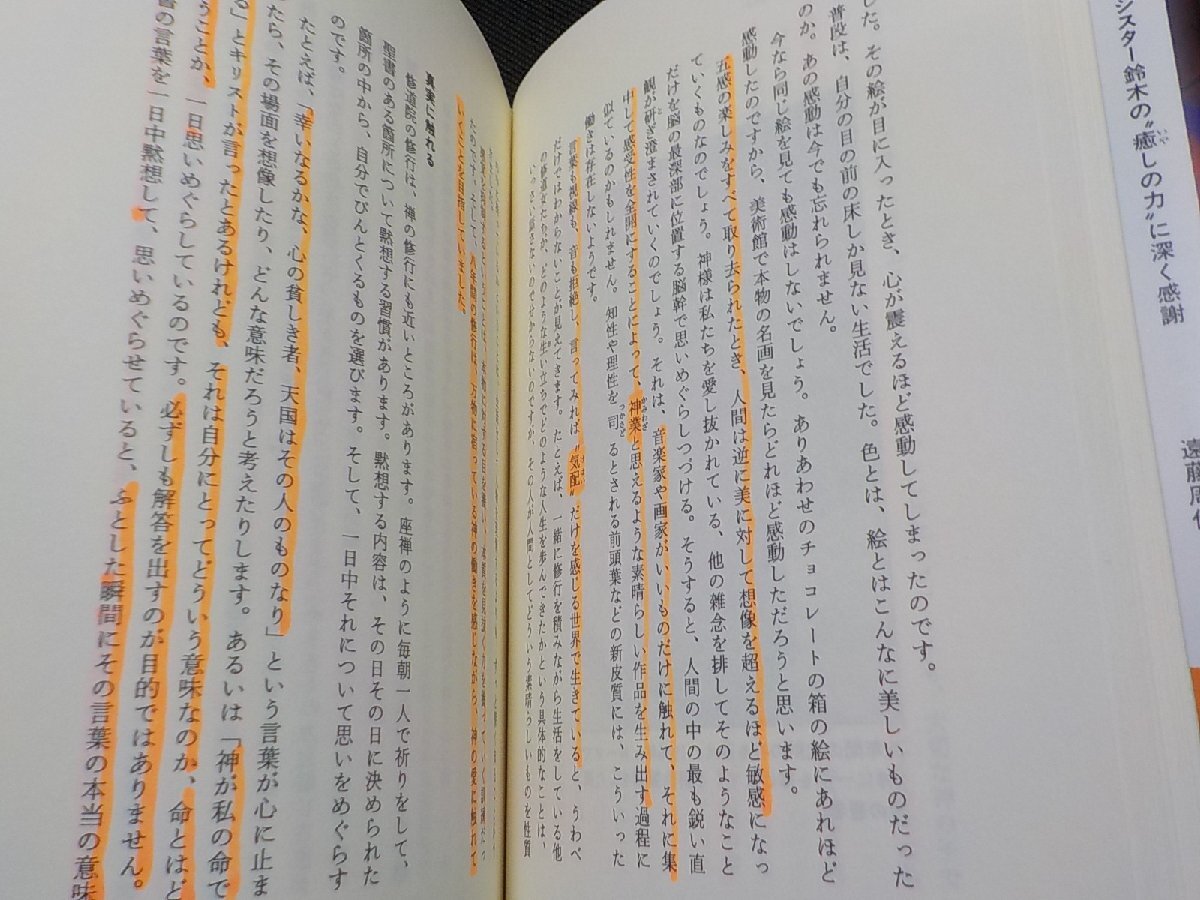 シスター鈴木の“癒しの力”に深く感謝
遠藤周作
した。その絵が目に入ったとき、心が震えるほど感動してしまったのです。
普段は、自分の目の前の床しか見ない生活でした。色とは、絵とはこんなに美しいものだった
のか。あの感動は今でも忘れられません。
今なら同じ絵を見ても感動はしないでしょう。ありあわせのチョコレートの箱の絵にあれほど
感動したのですから、美術館で本物の名画を見たらどれほど感動しただろうと思います。
五感の楽しみをすべて取り去られたとき、人間は逆に美に対して想像を超えるほど敏感になっ
ていくものなのでしょう。神様は私たちを愛し抜かれている、他の雑念を排してそのようなこと
だけを脳の最深部に位置する脳幹で思いめぐらしつづける。そうすると、人間の中の最も鋭い直
観が研ぎ澄まされていくのでしょう。それは、音楽家や画家がいいものだけに触れて、それに集
中して感受性を全開にすることによって、神業と思えるような素晴らしい作品を生み出す過程に
似ているのかもしれません。知性や理性を司るとされる前頭葉などの新皮質には、こういった
働きは存在しないようです。
言葉も視線も、音も拒絶し、言ってみれば“気配”だけを感じる世界で生きていると、うわべ
だけではわからないことが見えてきます。たとえば、一緒に修行を積みながら生活をしている他
の修道女たちが、どのような生い立ちでどのような人生を歩んできたかという具体的なことは、
いっさい話さないのでわからないのですが、その人が人間としてどういう素晴らしいものを性質
たのです。そして、八年間の修行は、万物に宿っている神の働きを感じながら、神の愛に触れて
いくことを目指していました。
真実に触れる
修道院の修行は、禅の修行にも近いところがあります。座禅のように毎朝一人で祈りをして、
聖書のある箇所について黙想する習慣があります。黙想する内容は、その日その日に決められた
箇所の中から、自分でぴんとくるものを選びます。そして、一日中それについて思いをめぐらす
のです。
たとえば、「幸いなるかな、心の貧しき者、天国はその人のものなり」という言葉が心に止ま
ったら、その場面を想像したり、どんな意味だろうと考えたりします。あるいは「神が私の命で
る」とキリストが言ったとあるけれども、それは自分にとってどういう意味なのか、命とはど
うことか、一日思いめぐらしているのです。必ずしも解答を出すのが目的ではありません。
書の言葉を一日中黙想して、思いめぐらせていると、ふとした瞬間にその言葉の本当の意味